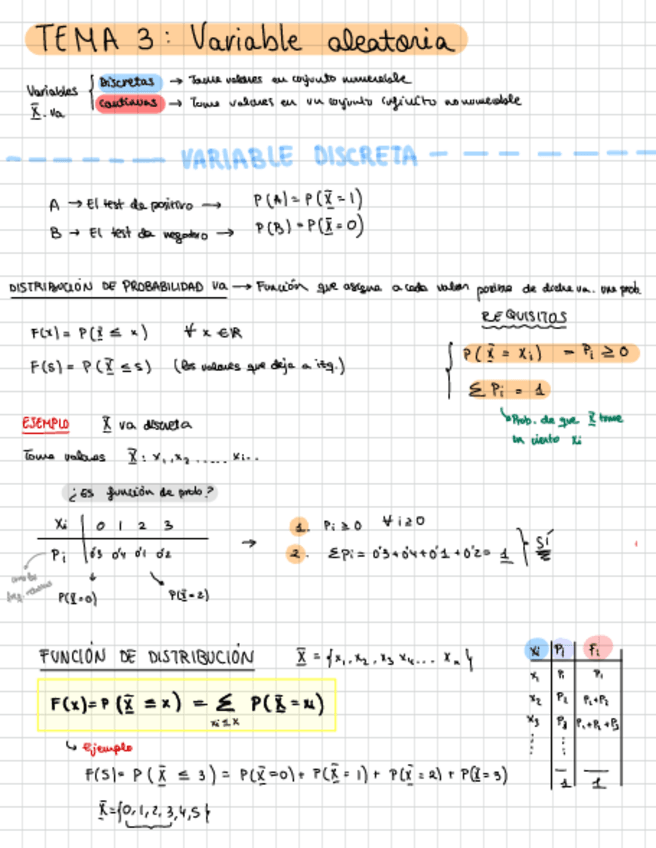 TEMA 3: Variable aleatoria
Variables
X. va
Discretas → Tome valores en conjunto numerable
Continuas → Tome valores en un conjunto infinito no numerable
VARIABLE DISCRETA
A → El test da positivo → P(A) = P(X = 1)
B → El test da negativo → P(B) = P(X = 0)
DISTRIBUCIÓN DE PROBABILIDAD va → Función que asigna a cada valor posible de dicha va. una prob.
REQUISITOS
F(x) = P(X ≤ x) ∀ x ∈ R
F(5) = P(X ≤ 5) (los valores que deja a izq.)
P(X = xi) = Pi ≥ 0
Σ Pi = 1
Prob. de que X tome
un cierto xi
EJEMPLO X va discreta
Tome valores X: x1, x2 ..... xi..
¿Es función de prob?
Xi | 0 1 2 3
Pi | 0'3 0'4 0'1 0'2
P(X=0) P(X=2)
→ 1. Pi ≥ 0 ∀ i ≥ 0
2. ΣPi = 0'3+0'4+0'1+0'2= 1
SÍ
FUNCIÓN DE DISTRIBUCIÓN X = {x1, x2, x3 x4... xn}
F(x)=P(X ≤ x) = Σ P(X = xi)
xi ≤ x
Ejemplo
F(3)= P(X ≤ 3) = P(X=0) + P(X = 1) + P(X = 2) + P(X = 3)
X={0,1,2,3,4,5}
Xi | Pi | Fi
x1 | P1 | P1
x2 | P2 | P1+P2
x3 | P3 | P1+P2+P3
1 | 1